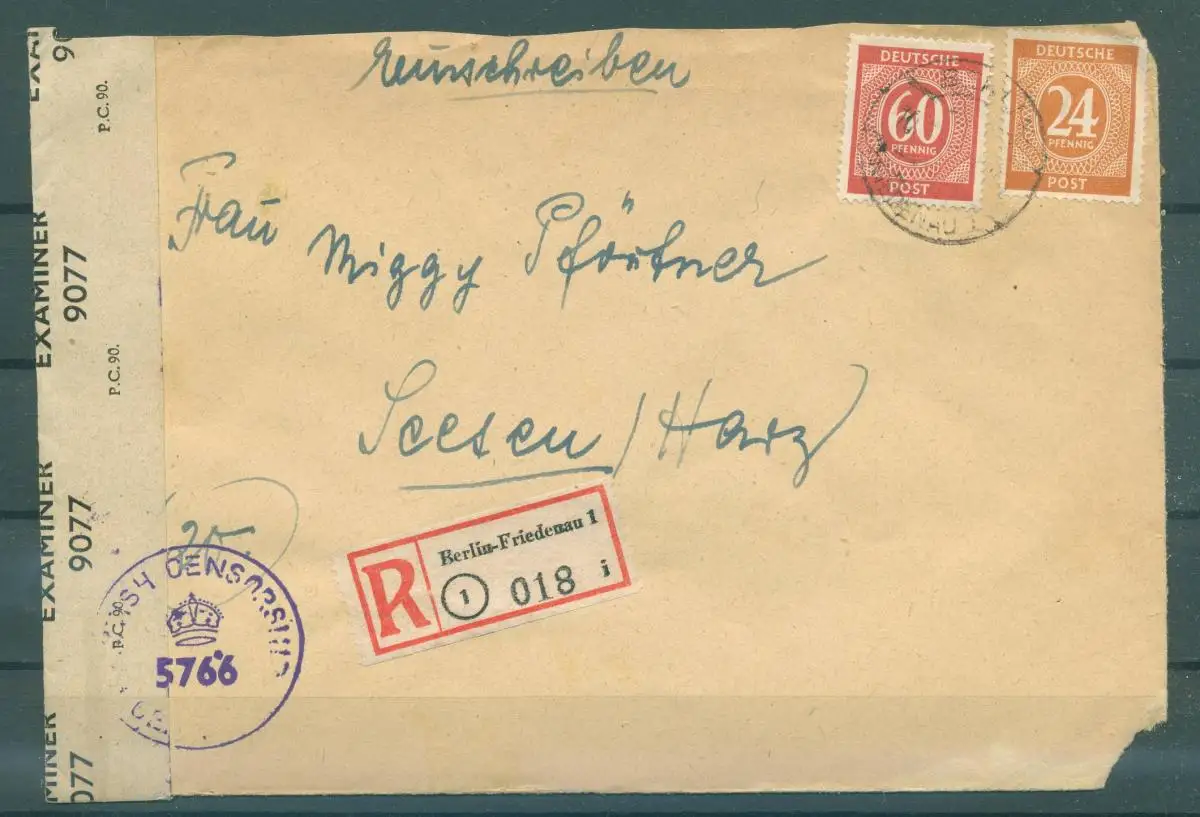 Einschreiben
DEUTSCHE
60
PFENNIG
POST
DEUTSCHE
24
PFENNIG
POST
Frau
Miggy Pförtner
Seesen/Harz
20.
R
Berlin-Friedenau 1
1 018 i
CENSORSHIP
5766
P.C. 90.
EXAMINER
9077
P.C. 90.
EXAMINER
9077
P.C. 90.
MINER
077